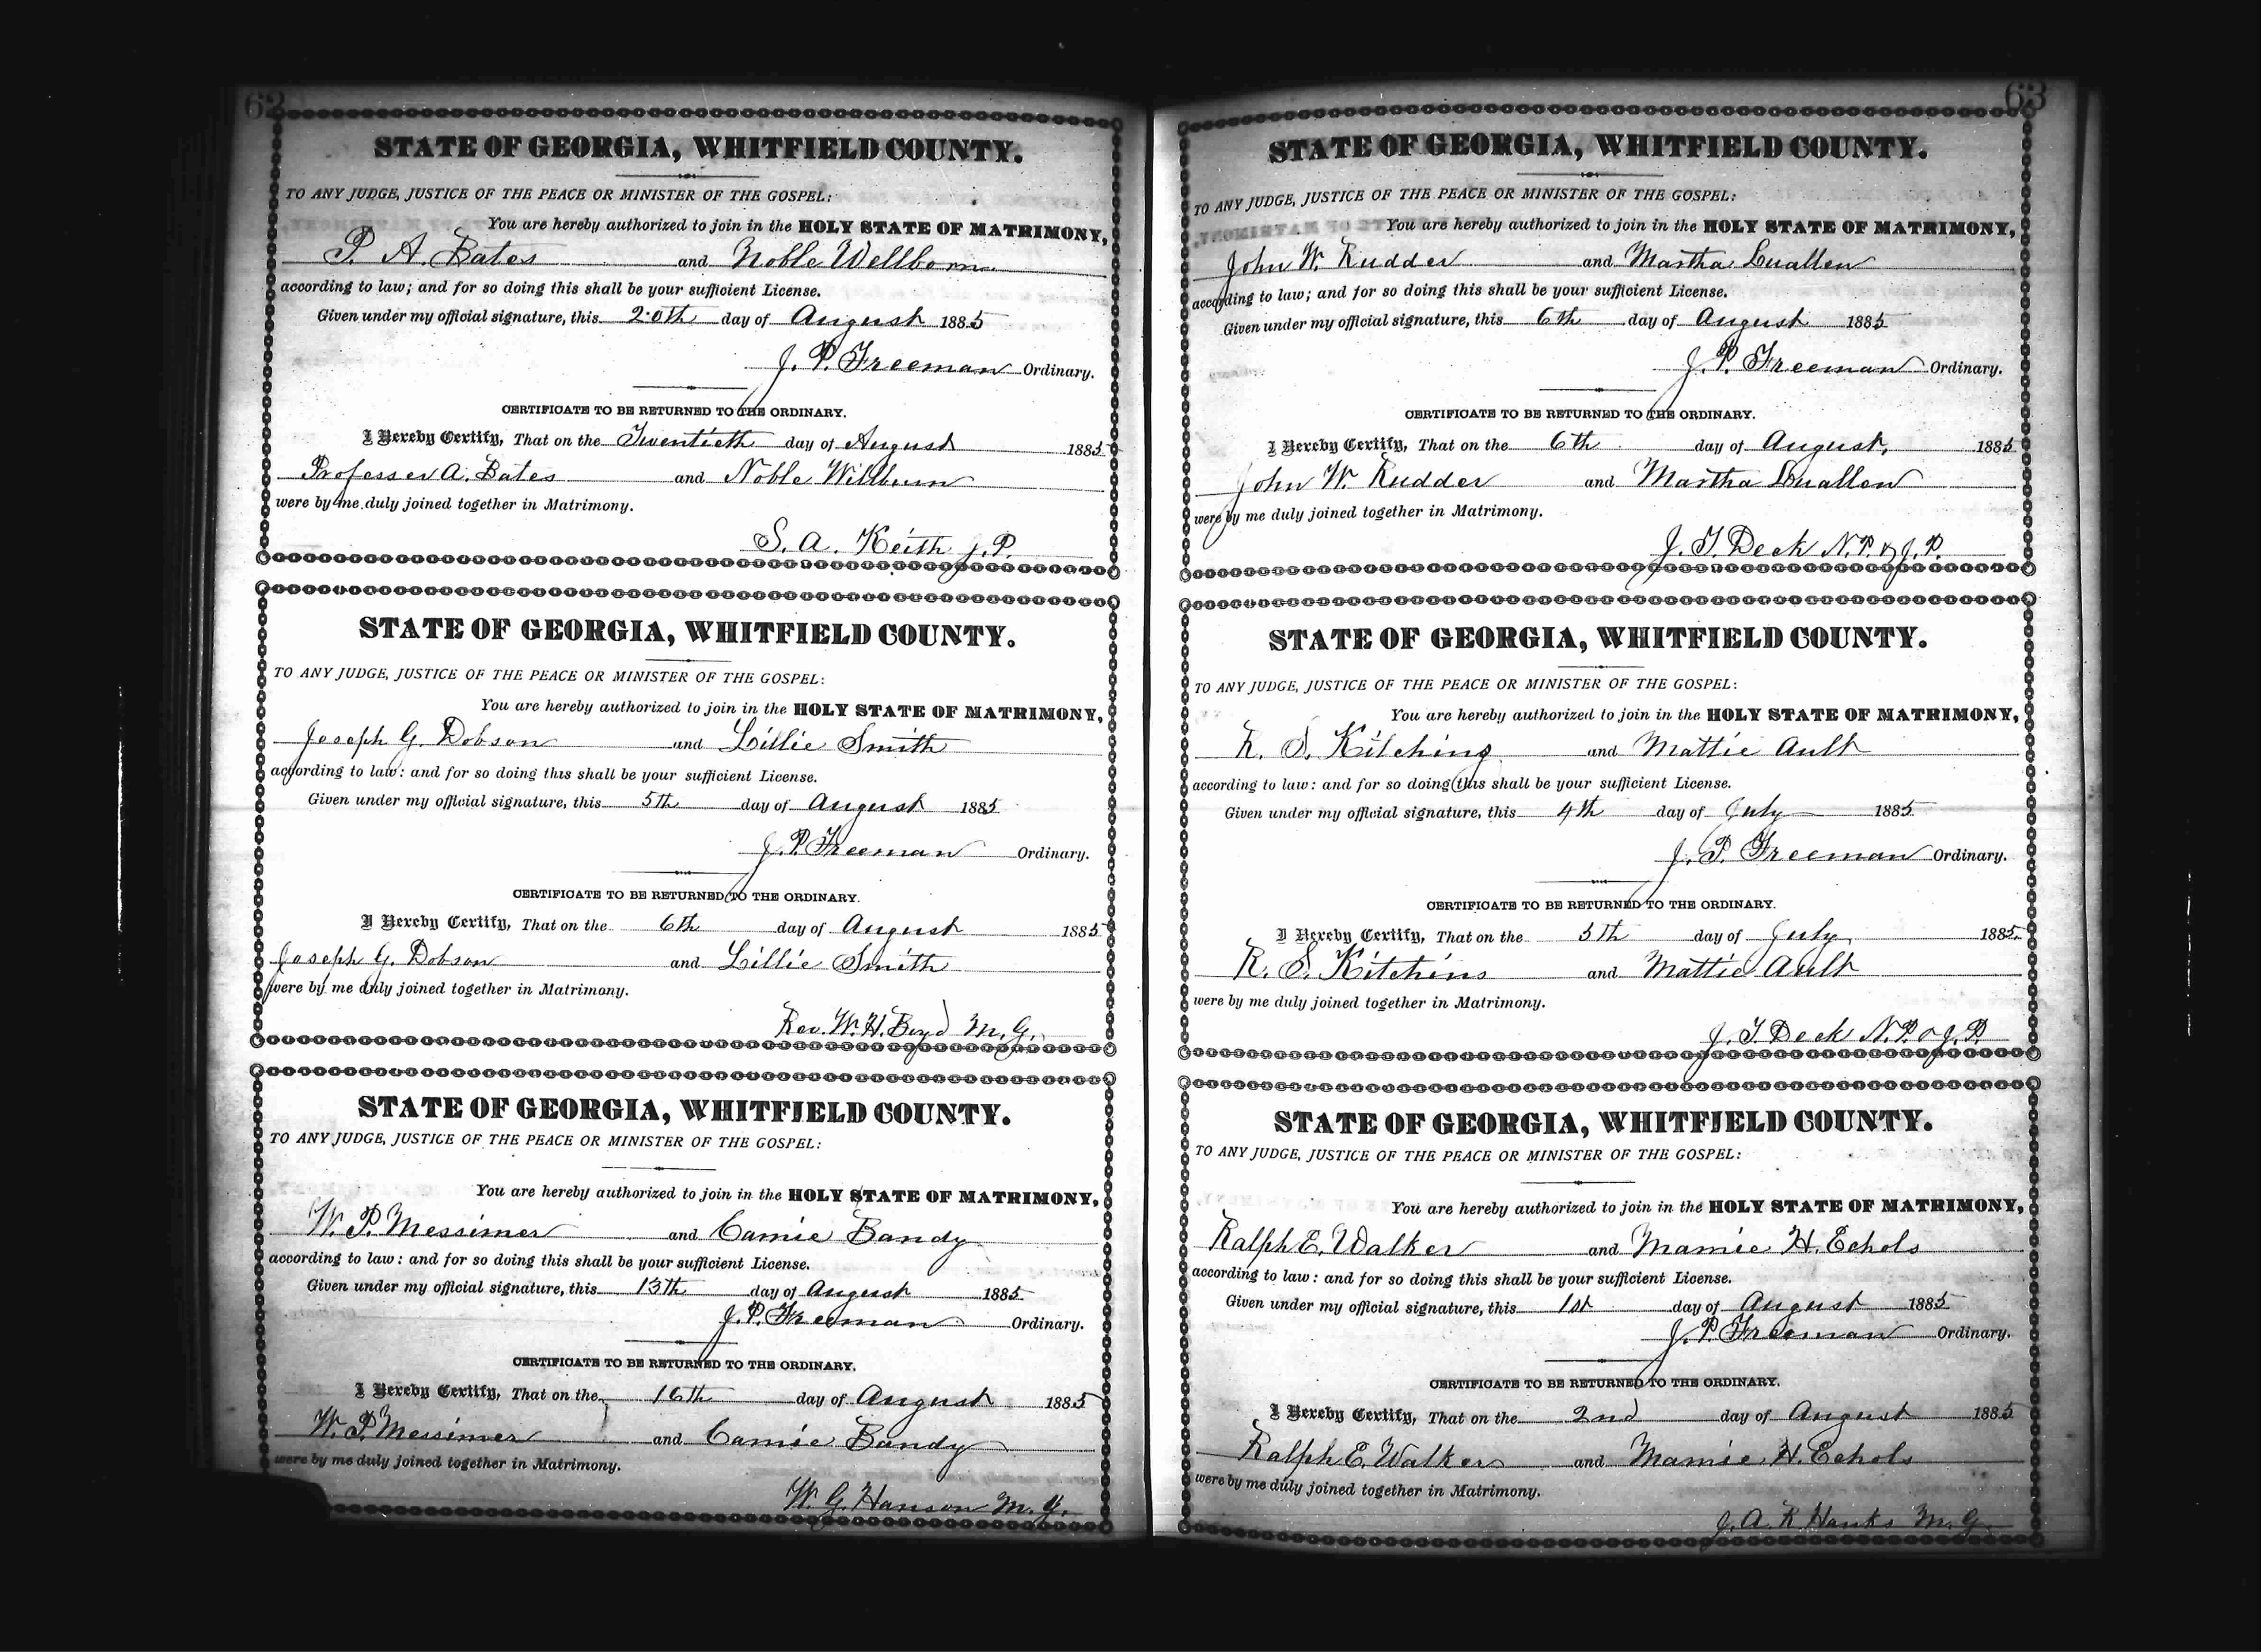 62
STATE OF GEORGIA, WHITFIELD COUNTY.
TO ANY JUDGE, JUSTICE OF THE PEACE OR MINISTER OF THE GOSPEL:
You are hereby authorized to join in the HOLY STATE OF MATRIMONY,
P. A. Bates and Noble Wellborn
according to law; and for so doing this shall be your sufficient License.
Given under my official signature, this 20th day of August 1885
J. P. Freeman Ordinary.
CERTIFICATE TO BE RETURNED TO THE ORDINARY.
I Hereby Certify, That on the Twentieth day of August 1885
Professer A. Bates and Noble Willburn
were by me duly joined together in Matrimony.
S. A. Keith J.P.
STATE OF GEORGIA, WHITFIELD COUNTY.
TO ANY JUDGE, JUSTICE OF THE PEACE OR MINISTER OF THE GOSPEL:
You are hereby authorized to join in the HOLY STATE OF MATRIMONY,
Joseph G. Dobson and Lillie Smith
according to law: and for so doing this shall be your sufficient License.
Given under my official signature, this 5th day of August 1885
J. P. Freeman Ordinary.
CERTIFICATE TO BE RETURNED TO THE ORDINARY.
I Hereby Certify, That on the 6th day of August 1885
Joseph G. Dobson and Lillie Smith
were by me duly joined together in Matrimony.
Rev. W. H. Boyd M. G.
STATE OF GEORGIA, WHITFIELD COUNTY.
TO ANY JUDGE, JUSTICE OF THE PEACE OR MINISTER OF THE GOSPEL:
You are hereby authorized to join in the HOLY STATE OF MATRIMONY,
W. P. Messimer and Camie Bandy
according to law: and for so doing this shall be your sufficient License.
Given under my official signature, this 13th day of August 1885
J. P. Freeman Ordinary.
CERTIFICATE TO BE RETURNED TO THE ORDINARY.
I Hereby Certify, That on the 16th day of August 1885
W. P. Messimer and Camie Bandy
were by me duly joined together in Matrimony.
W. G. Hanson M. G.
63
STATE OF GEORGIA, WHITFIELD COUNTY.
TO ANY JUDGE, JUSTICE OF THE PEACE OR MINISTER OF THE GOSPEL:
You are hereby authorized to join in the HOLY STATE OF MATRIMONY,
John W. Rudder and Martha Luallen
according to law; and for so doing this shall be your sufficient License.
Given under my official signature, this 6th day of August 1885
J. P. Freeman Ordinary.
CERTIFICATE TO BE RETURNED TO THE ORDINARY.
I Hereby Certify, That on the 6th day of August, 1885
John W. Rudder and Martha Luallen
were by me duly joined together in Matrimony.
J. T. Deck N.P. & J. P.
STATE OF GEORGIA, WHITFIELD COUNTY.
TO ANY JUDGE, JUSTICE OF THE PEACE OR MINISTER OF THE GOSPEL:
You are hereby authorized to join in the HOLY STATE OF MATRIMONY,
R. S. Kitching and Mattie Ault
according to law: and for so doing this shall be your sufficient License.
Given under my official signature, this 4th day of July 1885
J. P. Freeman Ordinary.
CERTIFICATE TO BE RETURNED TO THE ORDINARY.
I Hereby Certify, That on the 5th day of July 1885.
R. S. Kitchins and Mattie Ault
were by me duly joined together in Matrimony.
J. T. Deck N.P. & J. P.
STATE OF GEORGIA, WHITFIELD COUNTY.
TO ANY JUDGE, JUSTICE OF THE PEACE OR MINISTER OF THE GOSPEL:
You are hereby authorized to join in the HOLY STATE OF MATRIMONY,
Ralph E. Walker and Mamie H. Echols
according to law: and for so doing this shall be your sufficient License.
Given under my official signature, this 1st day of August 1885
J. P. Freeman Ordinary.
CERTIFICATE TO BE RETURNED TO THE ORDINARY.
I Hereby Certify, That on the 2nd day of August 1885
Ralph E. Walker and Mamie H. Echols
were by me duly joined together in Matrimony.
J. A. R Hanks M. G.